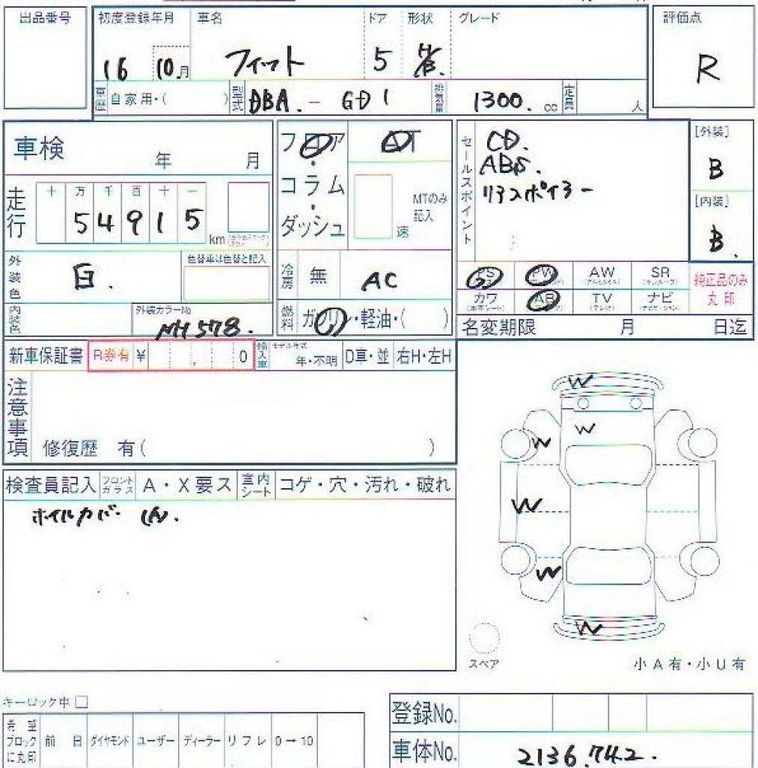 出品番号 初度登録年月 車名 ドア 形状 グレード 評価点
16 10月 フィット 5 R
車歴 自家用・( ) 型式 DBA-GD1 排気量 1300.cc 定員 人
車検 年 月
フロア AT
コラム
ダッシュ MTのみ記入 速
走行 十 万 千 百 十 一
54915 km
セールスポイント CD.
ABS.
リアスポイラー
[外装] B
[内装] B.
外装色 白. 色替車は色替と記入
冷房 無 AC
PS PW AW SR 純正品のみ
カワ AB TV ナビ 丸印
内装色 外装カラーNo. NH578.
燃料 ガソリン・軽油・( )
名変期限 月 日迄
新車保証書 R券有 ¥ . 0 輸入車 モデル年式 年・不明 D車・並 右H・左H
注意事項
修復歴 有( )
検査員記入 フロントガラス A・X要ス 室内シート コゲ・穴・汚れ・破れ
ホイルカバー
W
W
W
W
W
W
スペア
小A有・小U有
キーロック中
希望ブロックに丸印 前日 ダイヤモンド ユーザー ディーラー リフレ 0→10
登録No.
車体No. 2136742.